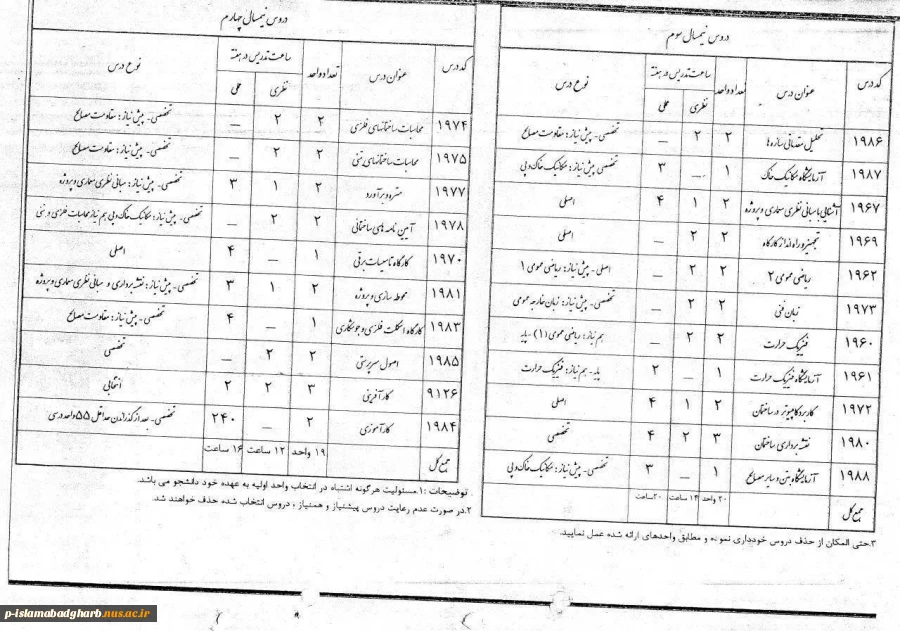 دروس نیمسال سوم
کد درس عنوان درس تعداد واحد ساعت تدریس در هفته نوع درس
نظری عملی
۱۹۸۶ تحلیل مقدماتی سازه ها ۲ ۲ _ تخصصی - پیش نیاز : مقاومت مصالح
۱۹۸۷ آزمایشگاه مکانیک خاک ۱ _ ۳ تخصصی پیش نیاز : مکانیک خاک و پی
۱۹۶۷ آشنایی با مبانی نظری معماری و پروژه ۲ ۱ ۴ اصلی
۱۹۶۹ تجهیز و راه انداز کارگاه ۲ ۲ _ اصلی
۱۹۶۲ ریاضی عمومی ۲ ۲ ۲ _ اصلی - پیش نیاز : ریاضی عمومی ۱
۱۹۷۳ زبان فنی ۲ ۲ _ تخصصی - پیش نیاز : زبان خارجه عمومی
۱۹۶۰ فیزیک حرارت ۲ ۲ _ هم نیاز : ریاضی عمومی (۱) - پایه
۱۹۶۱ آزمایشگاه فیزیک حرارت ۱ _ ۲ پایه - هم نیاز : فیزیک حرارت
۱۹۷۲ کاربرد کامپیوتر در ساختمان ۲ ۱ ۴ اصلی
۱۹۸۰ نقشه برداری ساختمان ۳ ۲ ۴ تخصصی
۱۹۸۸ آزمایشگاه بتن و سایر مصالح ۱ _ ۳ تخصصی - پیش نیاز : مکانیک خاک و پی
جمع کل ۲۰ واحد ۱۴ ساعت ۲۰ ساعت
۳.حتی المکان از حذف دروس خودداری نموده و مطابق واحدهای ارائه شده عمل نمایید.
دروس نیمسال چهارم
کد درس عنوان درس تعداد واحد ساعت تدریس در هفته نوع درس
نظری عملی
۱۹۷۴ محاسبات ساختمانهای فلزی ۲ ۲ _ تخصصی - پیش نیاز : مقاومت مصالح
۱۹۷۵ محاسبات ساختمانهای بتنی ۲ ۲ _ تخصصی - پیش نیاز : مقاومت مصالح
۱۹۷۷ متره و برآورد ۲ ۱ ۳ تخصصی - پیش نیاز : مبانی نظری معماری و پروژه
۱۹۷۸ آیین نامه های ساختمانی ۲ ۲ _ تخصصی - پیش نیاز : مکانیک خاک و پی هم نیاز محاسبات فلزی و بتنی
۱۹۷۰ کارگاه تاسیسات برقی ۱ _ ۴ اصلی
۱۹۸۱ محوطه سازی و پروژه ۲ ۱ ۳ تخصصی - پیش نیاز : نقشه برداری و مبانی نظری معماری و پروژه
۱۹۸۳ کارگاه اسکلت فلزی و جوشکاری ۱ _ ۴ تخصصی - پیش نیاز : مقاومت مصالح
۱۹۸۵ اصول سرپرستی ۲ ۲ _ تخصصی
۹۱۲۶ کارآفرینی ۳ ۲ ۲ انتخابی
۱۹۸۴ کارآموزی ۲ _ ۲۴۰ تخصصی - بعد از گذراندن حداقل ۵۵ واحد درسی
جمع کل ۱۹ واحد ۱۲ ساعت ۱۶ ساعت
توضیحات : ۱.مسئولیت هرگونه اشتباه در انتخاب واحد اولیه به عهده خود دانشجو می باشد.
۲.در صورت عدم رعایت دروس پیشنیاز و همنیاز ، دروس انتخاب شده حذف خواهند شد.
p-islamabadgharb.nus.ac.ir